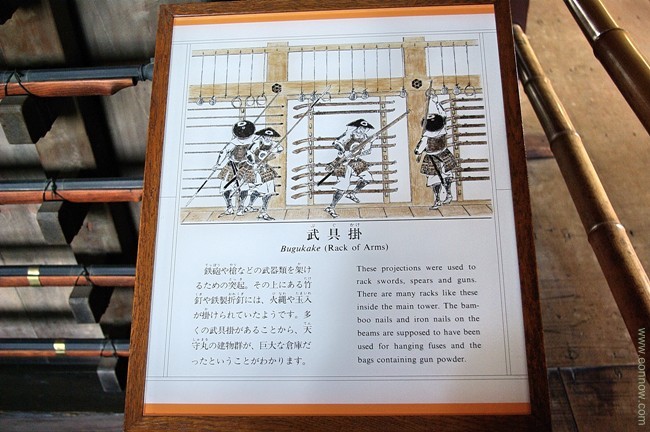 武具掛
Bugukake (Rack of Arms)
鉄砲や槍などの武器類を架け
るための突起。その上にある竹
釘や鉄製折釘には、火縄や玉入
が掛けられていたようです。多
くの武具掛があることから、天
守丸の建物群が、巨大な倉庫だ
ったということがわかります。
These projections were used to
rack swords, spears and guns.
There are many racks like these
inside the main tower. The bam-
boo nails and iron nails on the
beams are supposed to have been
used for hanging fuses and the
bags containing gun powder.
www.eonnow.com